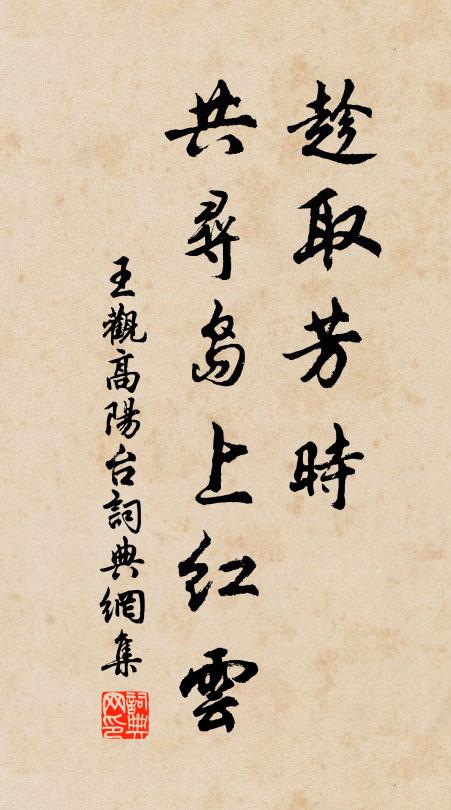 趁取芳時
共尋島上紅雲
王觀高陽台詞典網集
詞典
网印